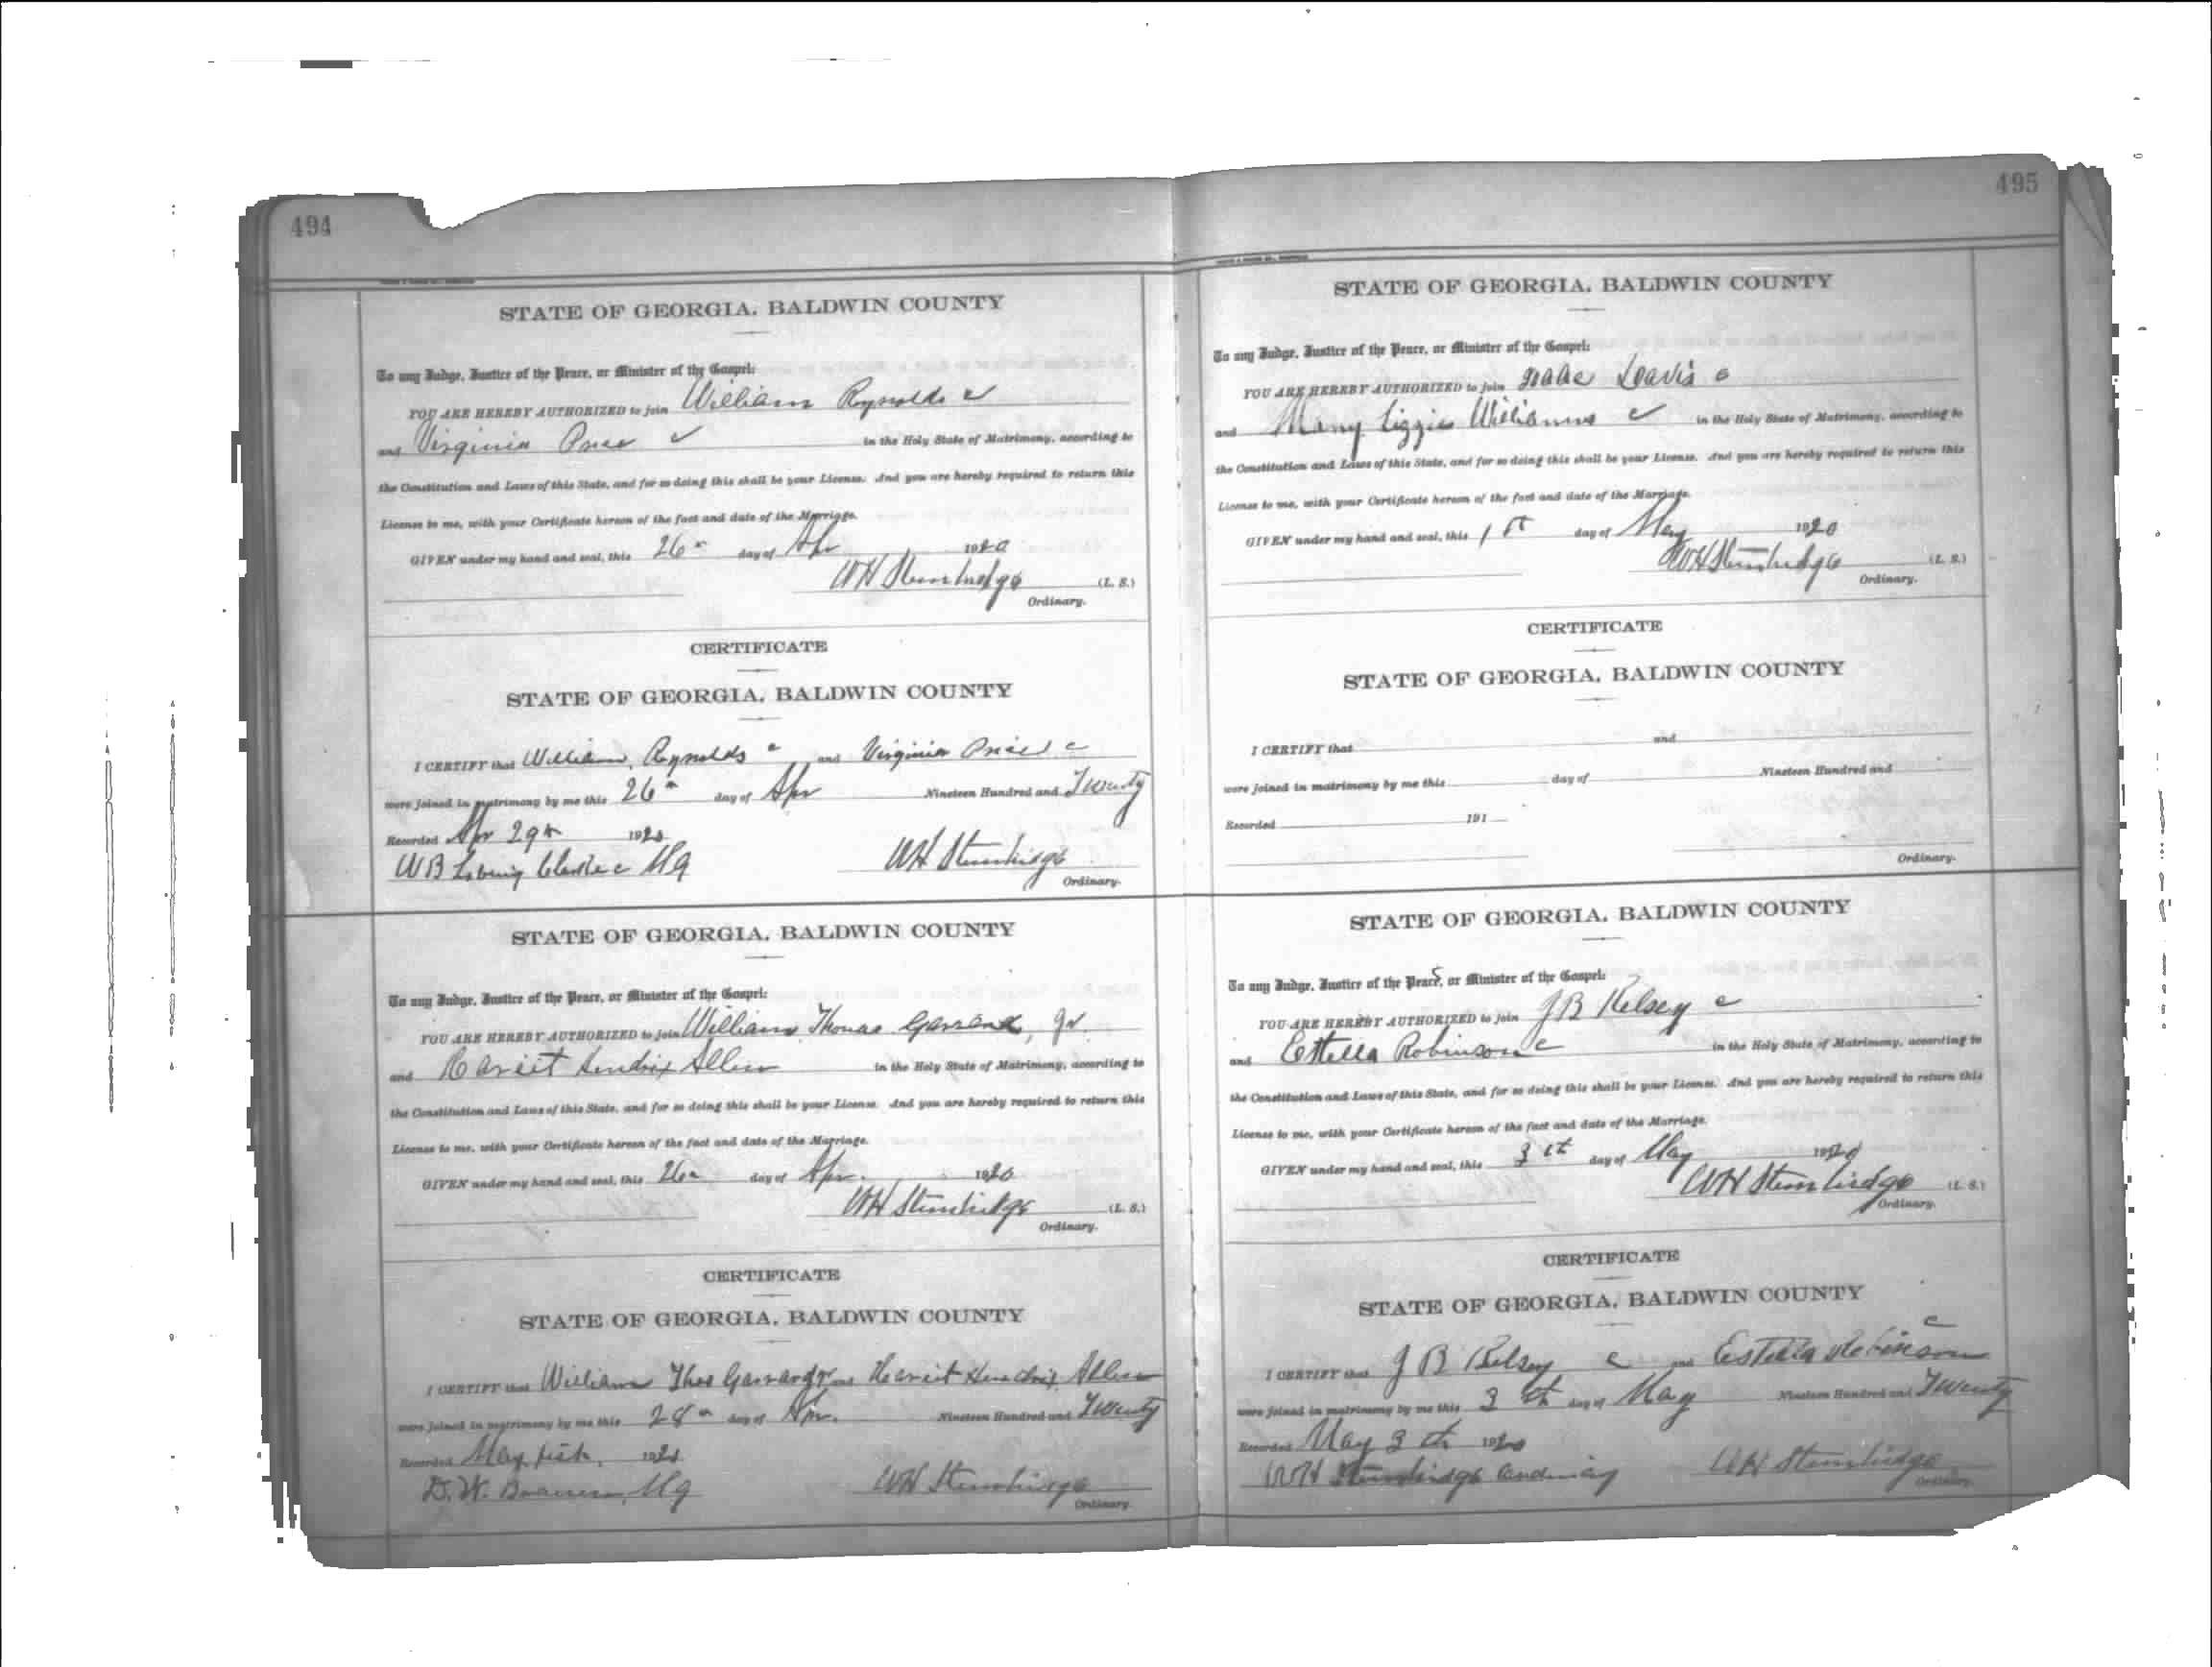 494
STATE OF GEORGIA, BALDWIN COUNTY
To any Judge, Justice of the Peace, or Minister of the Gospel:
YOU ARE HEREBY AUTHORIZED to join William Reynolds c
and Virginia Price c in the Holy State of Matrimony, according to
the Constitution and Laws of this State, and for so doing this shall be your License. And you are hereby required to return this
License to me, with your Certificate hereon of the fact and date of the Marriage.
GIVEN under my hand and seal, this 26 day of Apr 1920
WH Stembridge (L. S.)
Ordinary.
CERTIFICATE
STATE OF GEORGIA, BALDWIN COUNTY
I CERTIFY that William Reynolds c and Virginia Price c
were joined in matrimony by me this 26 day of Apr Nineteen Hundred and Twenty
Recorded Apr 29 1920
W B MG WH Stembridge
Ordinary.
STATE OF GEORGIA, BALDWIN COUNTY
To any Judge, Justice of the Peace, or Minister of the Gospel:
YOU ARE HEREBY AUTHORIZED to join William Thomas Garrard, Jr.
and Hariet Hendrix Allen in the Holy State of Matrimony, according to
the Constitution and Laws of this State, and for so doing this shall be your License. And you are hereby required to return this
License to me, with your Certificate hereon of the fact and date of the Marriage.
GIVEN under my hand and seal, this 26 day of Apr. 1920
WH Stembridge (L. S.)
Ordinary.
CERTIFICATE
STATE OF GEORGIA, BALDWIN COUNTY
I CERTIFY that William Thos Garrard Jr and Hariet Hendrix Allen
were joined in matrimony by me this 28 day of Apr. Nineteen Hundred and Twenty
Recorded May 1920
D. W. MG WH Stembridge
Ordinary.
495
STATE OF GEORGIA, BALDWIN COUNTY
To any Judge, Justice of the Peace, or Minister of the Gospel:
YOU ARE HEREBY AUTHORIZED to join Davis c
and Mary Lizzie Williams c in the Holy State of Matrimony, according to
the Constitution and Laws of this State, and for so doing this shall be your License. And you are hereby required to return this
License to me, with your Certificate hereon of the fact and date of the Marriage.
GIVEN under my hand and seal, this 1st day of May 1920
WH Stembridge (L. S.)
Ordinary.
CERTIFICATE
STATE OF GEORGIA, BALDWIN COUNTY
I CERTIFY that and
were joined in matrimony by me this day of Nineteen Hundred and
Recorded 191
Ordinary.
STATE OF GEORGIA, BALDWIN COUNTY
To any Judge, Justice of the Peace, or Minister of the Gospel:
YOU ARE HEREBY AUTHORIZED to join J B Kelsey c
and Estella Robinson c in the Holy State of Matrimony, according to
the Constitution and Laws of this State, and for so doing this shall be your License. And you are hereby required to return this
License to me, with your Certificate hereon of the fact and date of the Marriage.
GIVEN under my hand and seal, this 3th day of May 1920
WH Stembridge (L. S.)
Ordinary.
CERTIFICATE
STATE OF GEORGIA, BALDWIN COUNTY
I CERTIFY that J B Kelsey c and Estella Robinson c
were joined in matrimony by me this 3th day of May Nineteen Hundred and Twenty
Recorded May 3th 1920
WH Stembridge WH Stembridge
Ordinary.